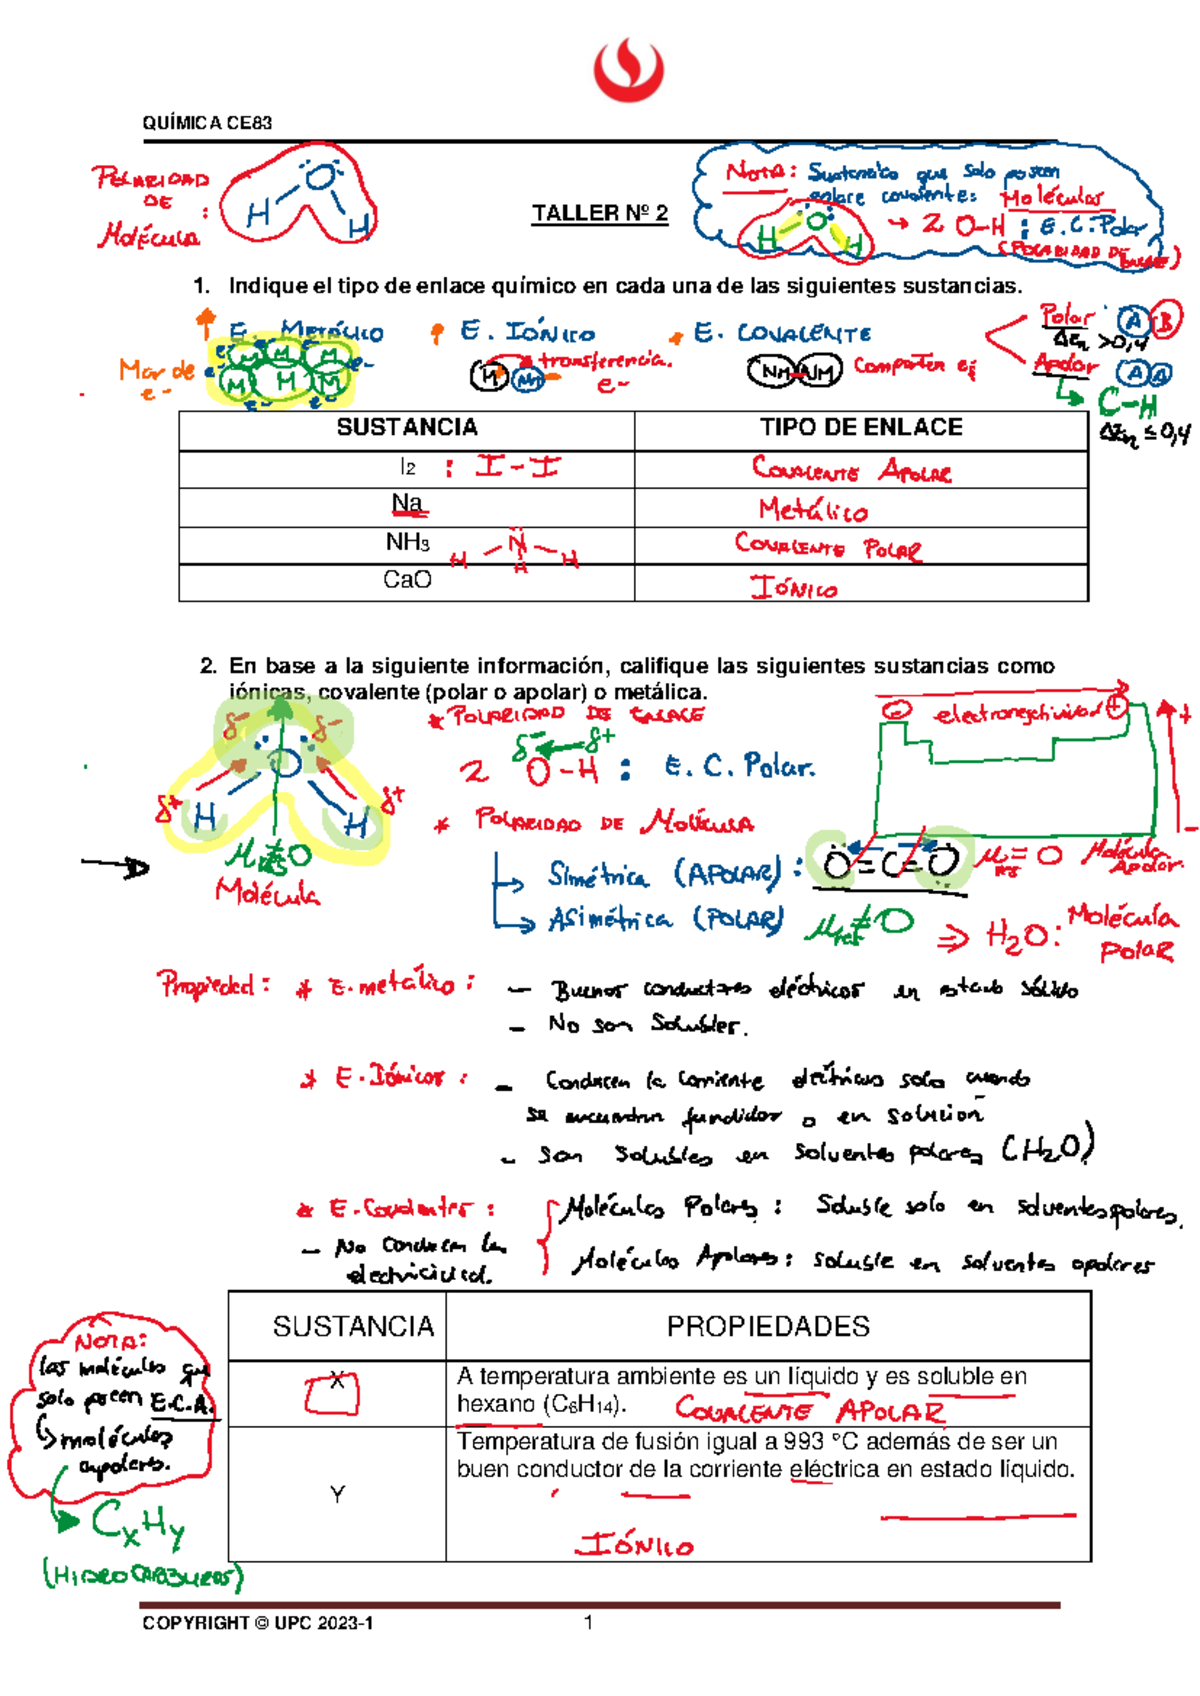 QUÍMICA CE83
POLARIDAD
DE
:
Molécula
H O H
TALLER Nº 2
Nota: Sustancias que solo poseen
enlace covalente: Moléculas
H O H → 2 O-H : E.C. Polar
(POLARIDAD DE ENLACE)
1. Indique el tipo de enlace químico en cada una de las siguientes sustancias.
E. METÁLICO E. IÓNICO E. COVALENTE
Polar A B
ΔEn >0,4
Mar de
e-
M M M
M M M
e-
transferencia.
e-
NM NM Comparten
Apolar A A
C-H
ΔEn ≤ 0,4
SUSTANCIA TIPO DE ENLACE
I2 : I-I COVALENTE APOLAR
Na Metálico
NH3 H N H H COVALENTE POLAR
CaO IÓNICO
2. En base a la siguiente información, califique las siguientes sustancias como
iónicas, covalente (polar o apolar) o metálica.
* POLARIDAD DE ENLACE
δ- δ-
δ- δ+
2 O-H : E.C. Polar.
electronegatividad +
δ+ H O H δ+
* POLARIDAD DE MOLÉCULA
μ ≠ 0
Molécula
Simétrica (APOLAR) : O=C=O μ = 0 Molécula
Apolar.
Asimétrica (POLAR) μ ≠ 0 ⇒ H2O: Molécula
POLAR
Propiedad: * E. metálico : - Buenos conductores eléctricos en estado sólido
- No son solubles.
* E. Iónicos : - Conducen la corriente eléctrica solo cuando
se encuentran fundidos o en solución
- Son solubles en solventes polares (H2O)
* E. Covalentes : Moléculas Polares : Soluble solo en solventes polares.
- No conducen la
electricidad.
Moléculas Apolares : soluble en solventes apolares
SUSTANCIA PROPIEDADES
X A temperatura ambiente es un líquido y es soluble en
hexano (C6H14). COVALENTE APOLAR
Y Temperatura de fusión igual a 993 °C además de ser un
buen conductor de la corriente eléctrica en estado líquido.
IÓNICO
NOTA:
las moléculas que
solo poseen E.C.A.
moléculas
apolares.
CxHy
(HIDROCARBUROS)
COPYRIGHT © UPC 2023-1 1